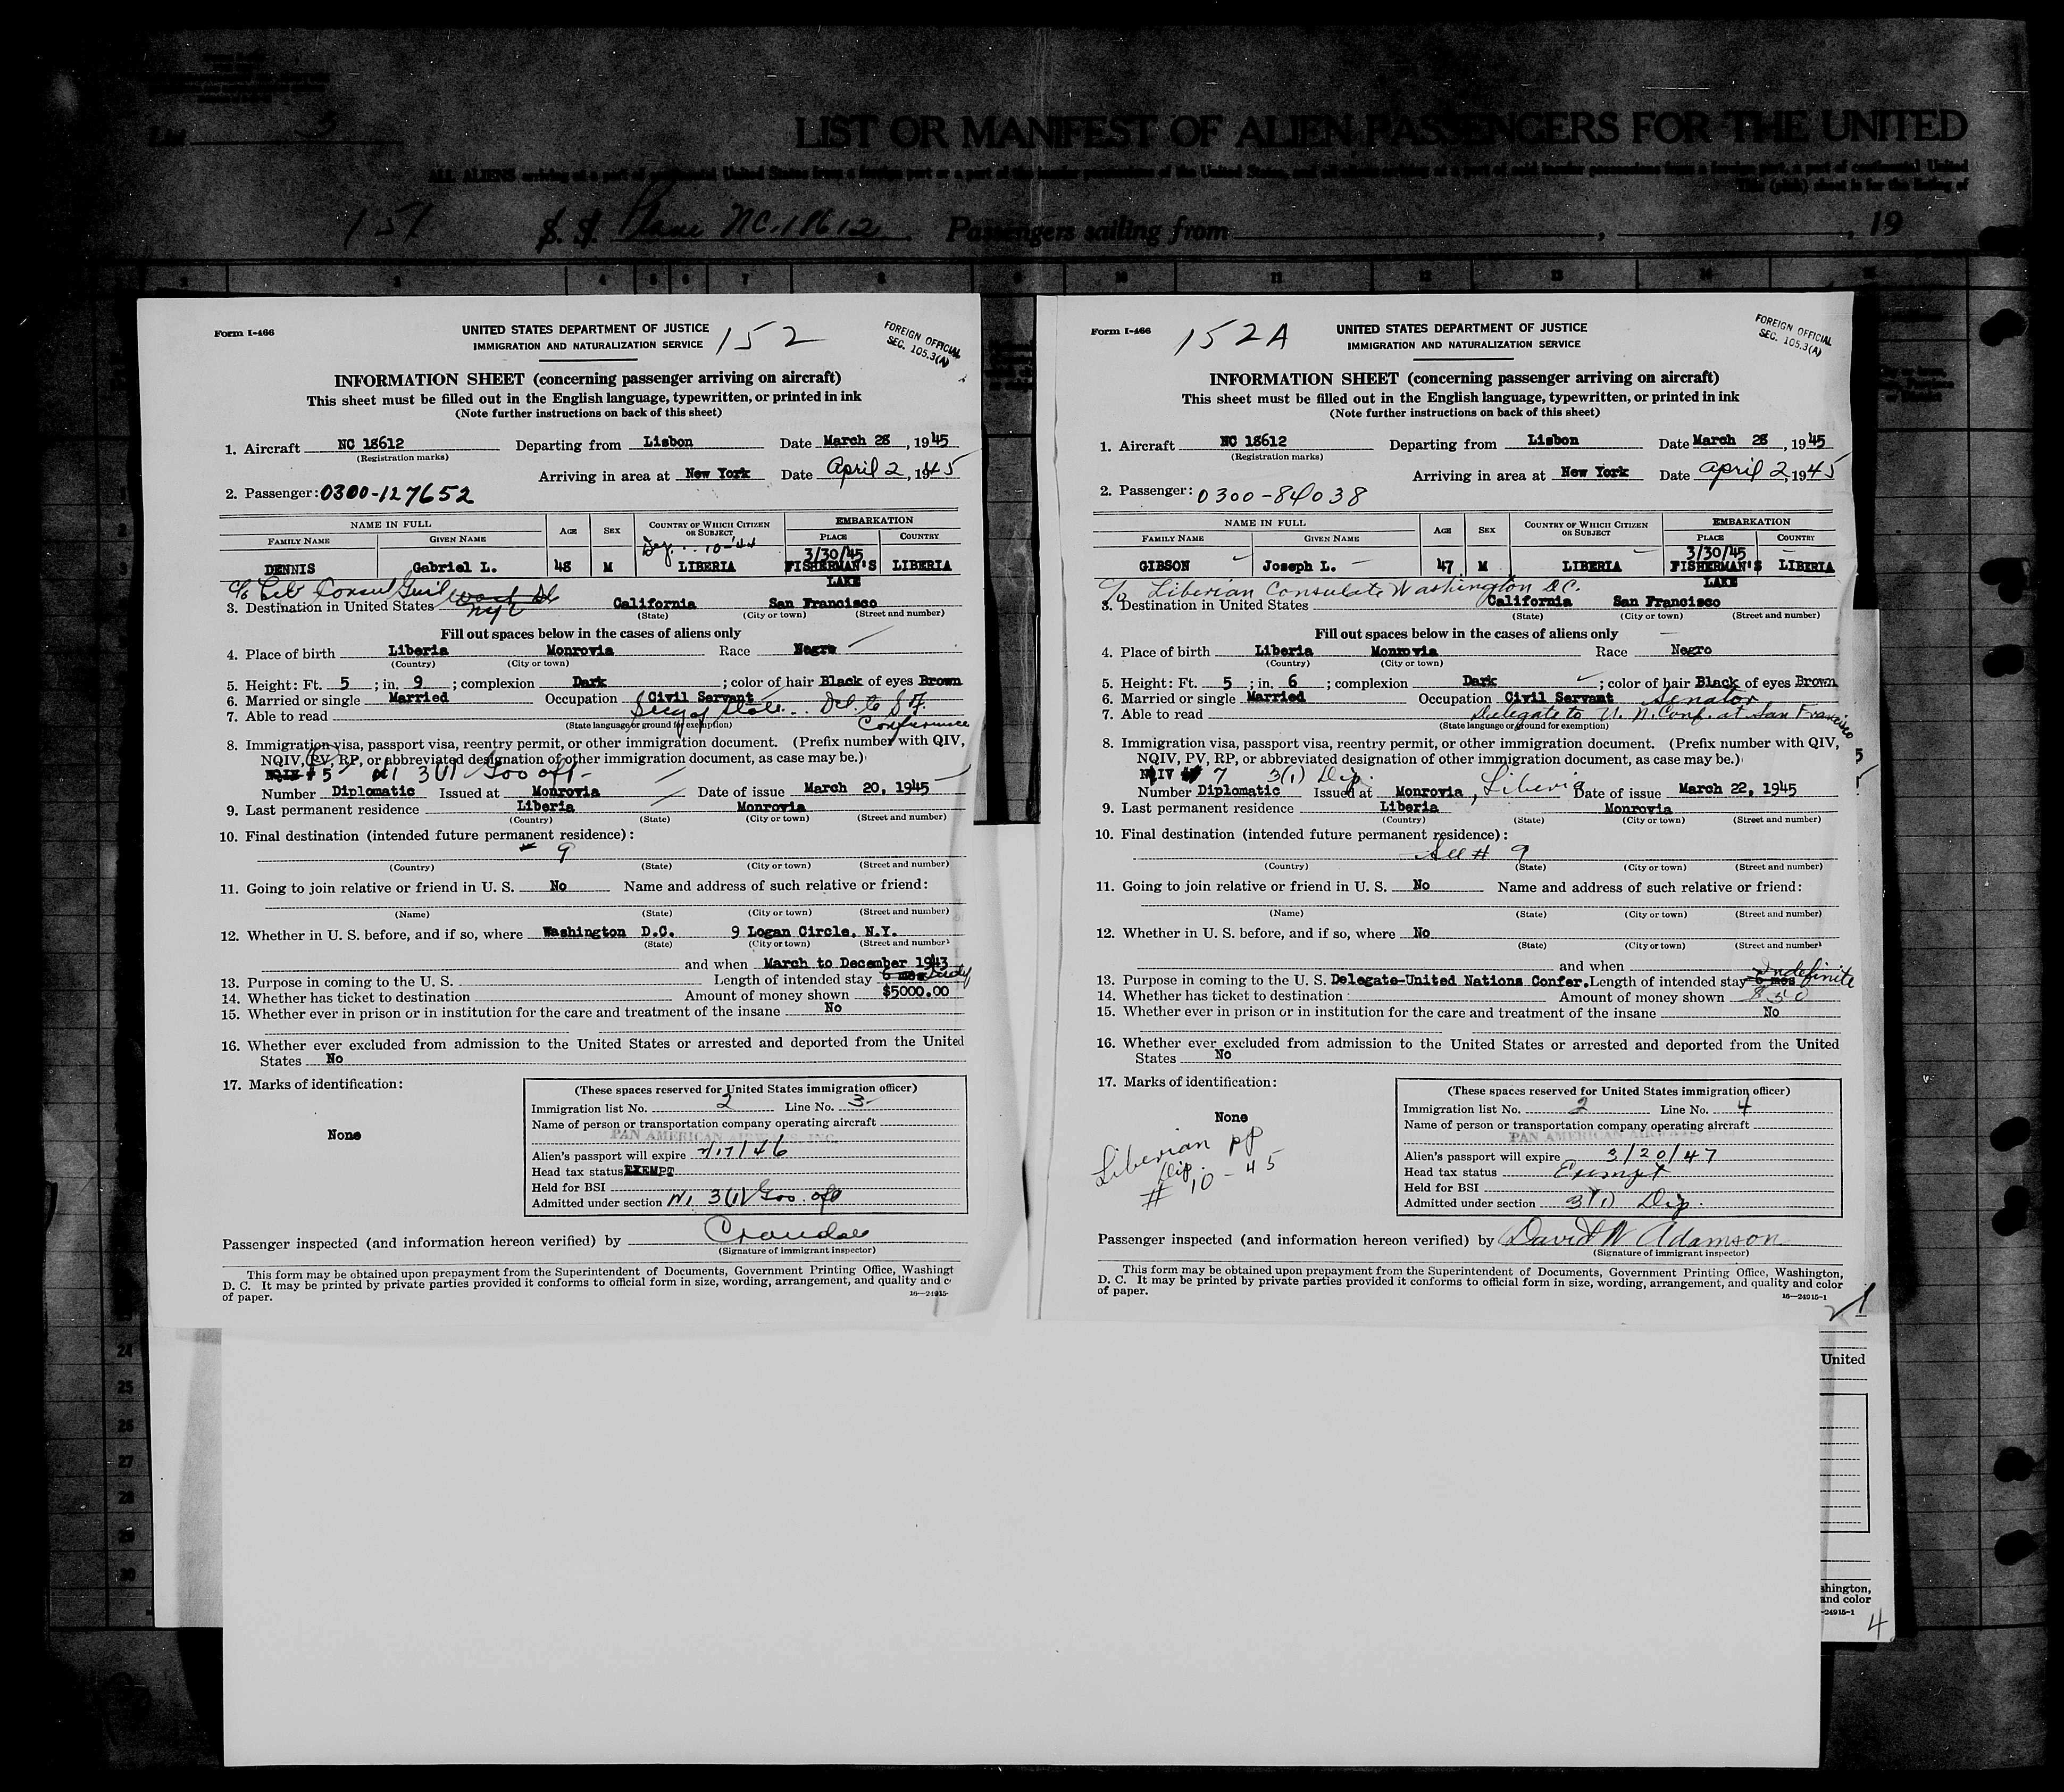 List 3
LIST OR MANIFEST OF ALIEN PASSENGERS FOR THE UNITED
ALL ALIENS arriving at a port of continental United States from a foreign port or a port of the insular possessions of the United States, and all aliens arriving at a port of said insular possessions from a foreign port, a port of continental United
This (pink) sheet is for the listing of
151 S. S. Plane NC.18612 Passengers sailing from , , 19
Form I-466
UNITED STATES DEPARTMENT OF JUSTICE
IMMIGRATION AND NATURALIZATION SERVICE
152
FOREIGN OFFICIAL
SEC. 105.3(A)
INFORMATION SHEET (concerning passenger arriving on aircraft)
This sheet must be filled out in the English language, typewritten, or printed in ink
(Note further instructions on back of this sheet)
1. Aircraft NC 18612 Departing from Lisbon Date March 28, 1945
(Registration marks)
Arriving in area at New York Date April 2, 1945
2. Passenger: 0300-127652
NAME IN FULL AGE SEX COUNTRY OF WHICH CITIZEN OR SUBJECT EMBARKATION
FAMILY NAME GIVEN NAME PLACE COUNTRY
10-'44 3/30/45
DENNIS Gabriel L. 48 M LIBERIA FISHERMAN'S LIBERIA
LAKE
c/o Lib Consul Genl
3. Destination in United States NYC California San Francisco
(State) (City or town) (Street and number)
Fill out spaces below in the cases of aliens only
4. Place of birth Liberia Monrovia Race Negro
(Country) (City or town)
5. Height: Ft. 5 ; in. 9 ; complexion Dark ; color of hair Black of eyes Brown
6. Married or single Married Occupation Civil Servant
7. Able to read Secy of State.. Del. to S.F. Conference
(State language or ground for exemption)
8. Immigration visa, passport visa, reentry permit, or other immigration document. (Prefix number with QIV,
NQIV, PV, RP, or abbreviated designation of other immigration document, as case may be.)
NQIV # 5 3(1) Gov off-
Number Diplomatic Issued at Monrovia Date of issue March 20, 1945
9. Last permanent residence Liberia Monrovia
(Country) (State) (City or town) (Street and number)
10. Final destination (intended future permanent residence):
# 9
(Country) (State) (City or town) (Street and number)
11. Going to join relative or friend in U. S. No Name and address of such relative or friend:
(Name) (State) (City or town) (Street and number)
12. Whether in U. S. before, and if so, where Washington D.C. 9 Logan Circle, N.Y.
(State) (City or town) (Street and number)
and when March to December 1943
13. Purpose in coming to the U. S. Length of intended stay 6 mos
14. Whether has ticket to destination Amount of money shown $5000.00
15. Whether ever in prison or in institution for the care and treatment of the insane No
16. Whether ever excluded from admission to the United States or arrested and deported from the United
States No
17. Marks of identification:
None
(These spaces reserved for United States immigration officer)
Immigration list No. 2 Line No. 3
Name of person or transportation company operating aircraft
PAN AMERICAN AIRWAYS, INC.
Alien's passport will expire
Head tax status EXEMPT
Held for BSI
Admitted under section 3(1) Gov. off
Passenger inspected (and information hereon verified) by Crandall
(Signature of immigrant inspector)
This form may be obtained upon prepayment from the Superintendent of Documents, Government Printing Office, Washingt
D. C. It may be printed by private parties provided it conforms to official form in size, wording, arrangement, and quality and c
of paper.
16—24915-
Form I-466
152A
UNITED STATES DEPARTMENT OF JUSTICE
IMMIGRATION AND NATURALIZATION SERVICE
FOREIGN OFFICIAL
SEC. 105.3(A)
INFORMATION SHEET (concerning passenger arriving on aircraft)
This sheet must be filled out in the English language, typewritten, or printed in ink
(Note further instructions on back of this sheet)
1. Aircraft NC 18612 Departing from Lisbon Date March 28, 1945
(Registration marks)
Arriving in area at New York Date April 2, 1945
2. Passenger: 0300-84038
NAME IN FULL AGE SEX COUNTRY OF WHICH CITIZEN OR SUBJECT EMBARKATION
FAMILY NAME GIVEN NAME PLACE COUNTRY
3/30/45
GIBSON Joseph L. 47 M LIBERIA FISHERMAN'S LIBERIA
LAKE
c/o Liberian Consulate Washington D.C.
3. Destination in United States California San Francisco
(State) (City or town) (Street and number)
Fill out spaces below in the cases of aliens only
4. Place of birth Liberia Monrovia Race Negro
(Country) (City or town)
5. Height: Ft. 5 ; in. 6 ; complexion Dark ; color of hair Black of eyes Brown
6. Married or single Married Occupation Civil Servant Senator
7. Able to read Delegate to U. N. Conf. at San Francisco
(State language or ground for exemption)
8. Immigration visa, passport visa, reentry permit, or other immigration document. (Prefix number with QIV,
NQIV, PV, RP, or abbreviated designation of other immigration document, as case may be.)
NQIV # 7 3(1) Dip.
Number Diplomatic Issued at Monrovia, Liberia Date of issue March 22, 1945
9. Last permanent residence Liberia Monrovia
(Country) (State) (City or town) (Street and number)
10. Final destination (intended future permanent residence):
See # 9
(Country) (State) (City or town) (Street and number)
11. Going to join relative or friend in U. S. No Name and address of such relative or friend:
(Name) (State) (City or town) (Street and number)
12. Whether in U. S. before, and if so, where No
(State) (City or town) (Street and number)
and when
13. Purpose in coming to the U. S. Delegate-United Nations Confer. Length of intended stay 6 mos Indefinite
14. Whether has ticket to destination Amount of money shown $50
15. Whether ever in prison or in institution for the care and treatment of the insane No
16. Whether ever excluded from admission to the United States or arrested and deported from the United
States No
17. Marks of identification:
None
Liberian pp
Dip.
# 10-45
(These spaces reserved for United States immigration officer)
Immigration list No. 2 Line No. 4
Name of person or transportation company operating aircraft
PAN AMERICAN AIRWAYS
Alien's passport will expire 3/20/47
Head tax status Exempt
Held for BSI
Admitted under section 3(1) Dip.
Passenger inspected (and information hereon verified) by David W Adamson
(Signature of immigrant inspector)
This form may be obtained upon prepayment from the Superintendent of Documents, Government Printing Office, Washington,
D. C. It may be printed by private parties provided it conforms to official form in size, wording, arrangement, and quality and color
of paper.
16—24915-1
United
shington,
and color
-24915-1
4
24
25
26
27
28
29
30